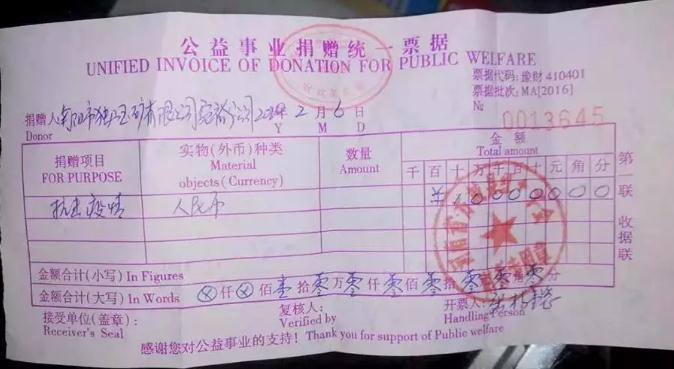 公益事业捐赠统一票据
UNIFIED INVOICE OF DONATION FOR PUBLIC WELFARE
票据代码: 豫财 410401
票据批次: MA[2016]
捐赠人 南阳市独山玉矿有限公司 公司 2020年 2 月 6 日
№ 0013645
Donor Y M D
捐赠项目 实物(外币)种类 数量 金额
FOR PURPOSE Material objects(Currency) Amount Total amount
千 百 十 万 千 百 十 元 角 分
抗击疫情 人民币 ¥ 1 0 0 0 0 0 0 0
第一联 收据联
金额合计(小写) In Figures
金额合计(大写) In Words ⊗仟⊗佰壹拾零万零仟零佰零拾零元零角零分
接受单位(盖章): 复核人: 开票人:
Receiver's Seal Verified by Handling Person
感谢您对公益事业的支持! Thank you for support of Public welfare